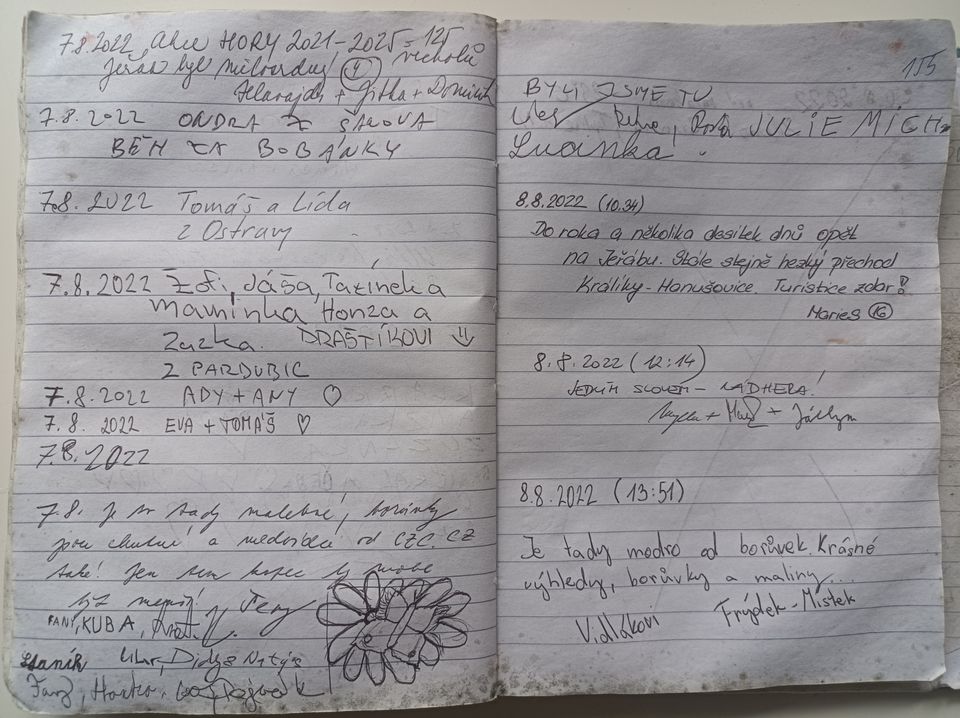 7.8.2022, Akce HORY 2021-2025 - 125
vrcholů
Jeřáb byl milosrdný
+ Jitka + Dominik
7.8.2022 ONDRA ZE
BĚH ZA BOBÁNKY
7.8.2022 Tomáš a Lída
z Ostravy
7.8.2022 Žofi, Jáša, Tatínek a
Maminka Honza a
Zuzka. DRAŠTÍKOVI
Z PARDUBIC
7.8.2022 ADY + ANY ♡
7.8.2022 EVA + TOMÁŠ ♡
7.8.2022
7.8. Je to tady malebné, borůvky
jsou chutné a medvídci od CZC.CZ
také! Jen sem kopec by mohl
být menší
FANI, KUBA,
Staník
155
BYLI JSME TU
JULIE MÍCHA
Lucinka.
8.8.2022 (10.34)
Do roka a několika desítek dnů opět
na Jeřábu. Stále stejně hezký přechod
Králíky-Hanušovice. Turistice zdar!
Marieš 16
8.8.2022 (12:14)
JEDNÍM SLOVEM - NÁDHERA!
+ + Jáchym
8.8.2022 (13:51)
Je tady modro od borůvek. Krásné
výhledy, borůvky a maliny...
Vidlákovi Frýdek-Místek